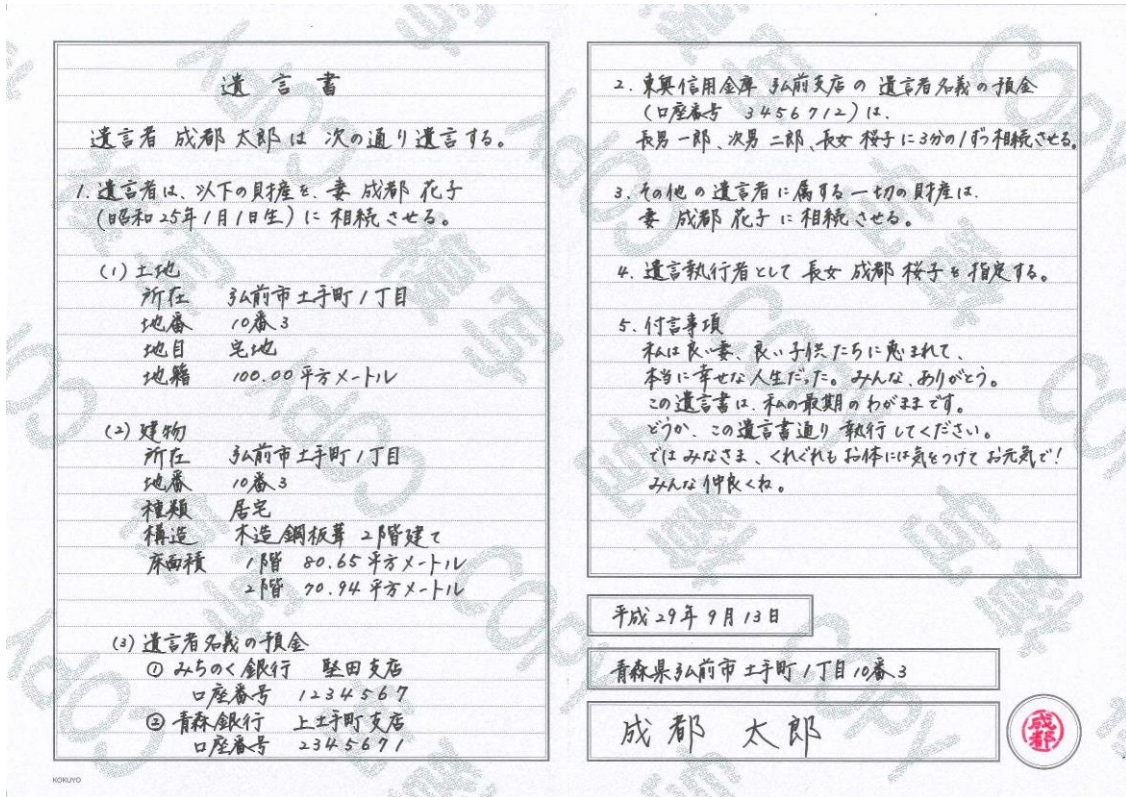 遺言書
遺言者 成都 太郎は 次の通り遺言する。
1. 遺言者は、以下の財産を、妻 成都 花子
(昭和25年1月1日生)に相続させる。
(1) 土地
所在 弘前市土手町1丁目
地番 10番3
地目 宅地
地籍 100.00平方メートル
(2) 建物
所在 弘前市土手町1丁目
地番 10番3
種類 居宅
構造 木造鋼板葺 2階建て
床面積 1階 80.65平方メートル
2階 70.94平方メートル
(3) 遺言者名義の預金
① みちのく銀行 堅田支店
口座番号 1234567
② 青森銀行 上土手町支店
口座番号 2345671
KOKUYO
2. 東奥信用金庫 弘前支店の 遺言者名義の預金
(口座番号 3456712)は、
長男 一郎、次男 二郎、長女 桜子に3分の1ずつ相続させる。
3. その他の遺言者に属する一切の財産は、
妻 成都 花子に相続させる。
4. 遺言執行者として 長女 成都 桜子を指定する。
5. 付言事項
私は良い妻、良い子供たちに恵まれて、
本当に幸せな人生だった。みんな、ありがとう。
この遺言書は、私の最期のわがままです。
どうか、この遺言書通り執行してください。
では みなさま、くれぐれもお体には気をつけてお元気で!
みんな仲良くね。
平成29年9月13日
青森県弘前市土手町1丁目10番3
成都 太郎
成都
複写
Copy